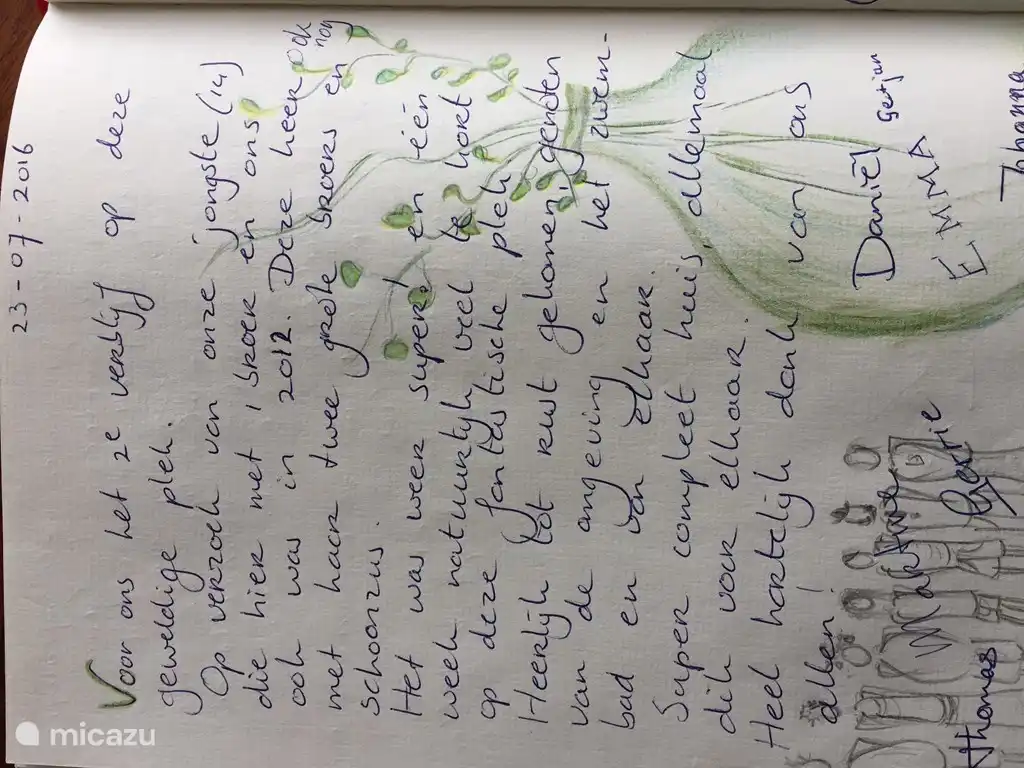 23-07-2016
Voor ons het 2e verblijf op deze
geweldige plek.
Op verzoek van onze jongste (14)
die hier met 1 broer en ons
ook was in 2012. Deze keer ook nog
met haar twee grote broers en
schoonzus.
Het was weer super! en één
week natuurlijk veel te kort
op deze fantastische plek.
Heerlijk tot rust gekomen, genoten
van de omgeving en het zwem-
bad en van elkaar.
Super compleet huis, allemaal
dik voor elkaar.
Heel hartelijk dank van ons
allen!
Daniël
Gerjan
EMMA
Johanna
Marjoke
Gerrie
thomas
micazu